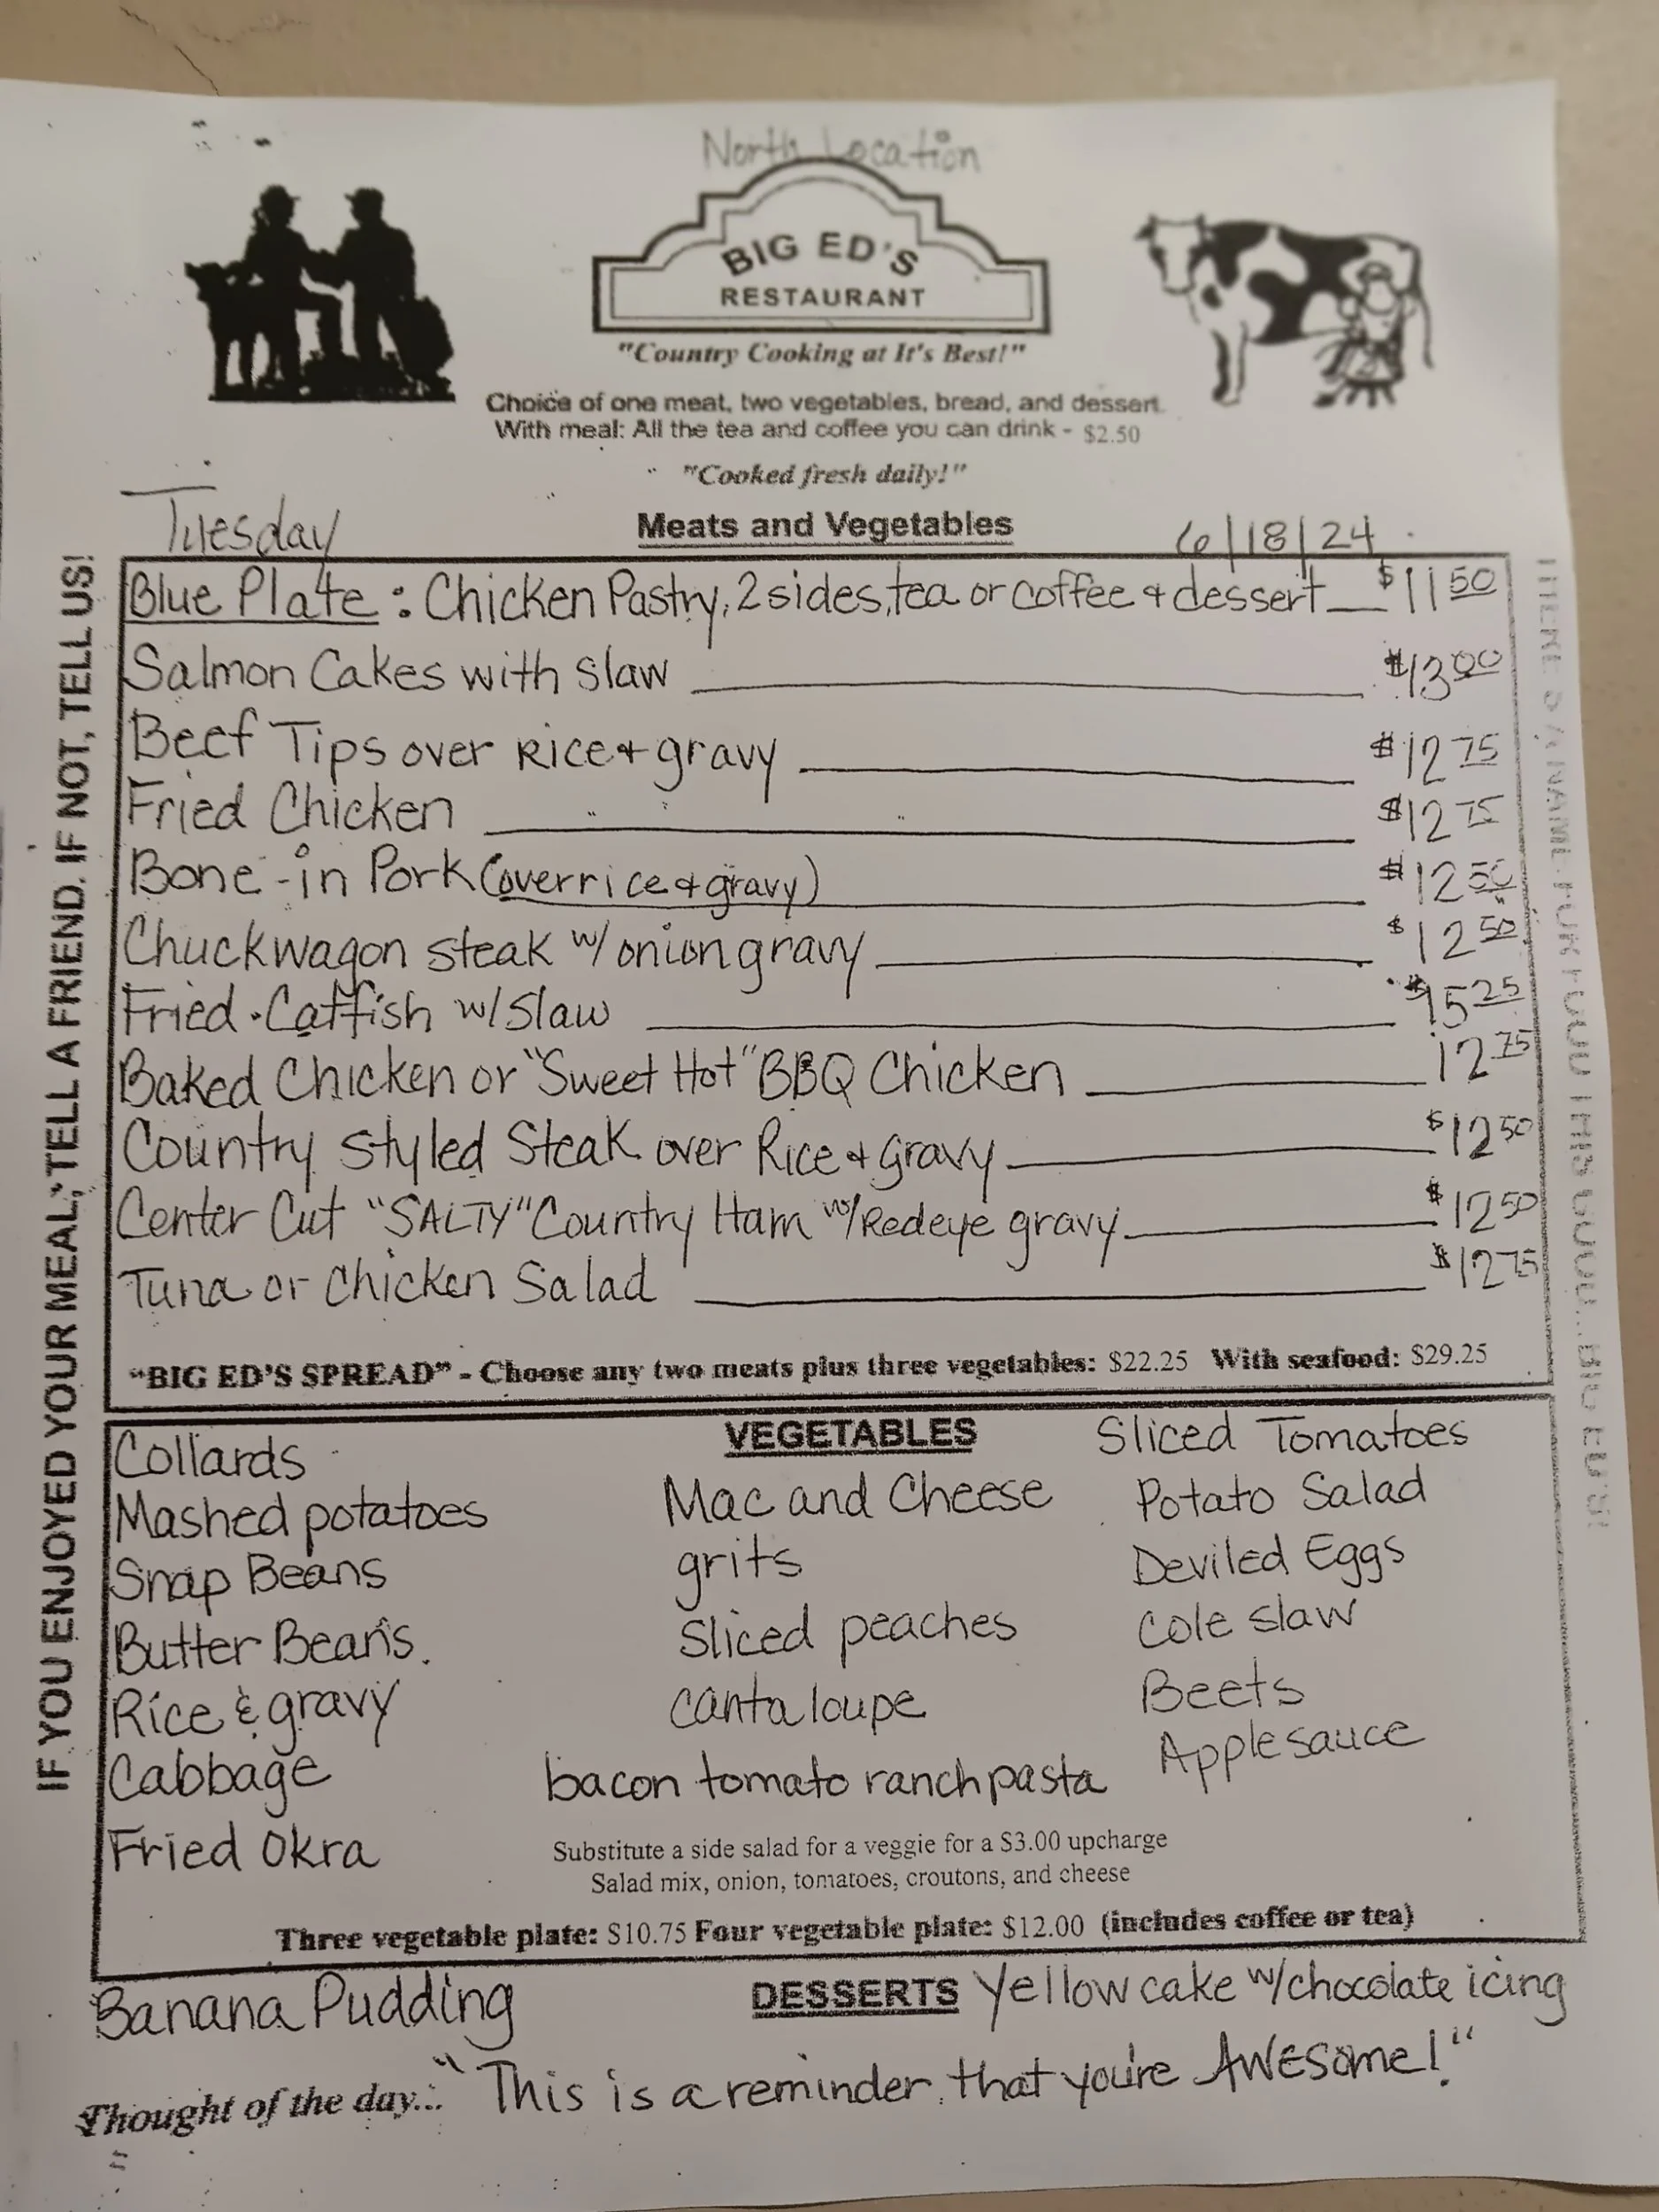 North Location
BIG ED'S
RESTAURANT
"Country Cooking at It's Best!"
Choice of one meat, two vegetables, bread, and dessert.
With meal: All the tea and coffee you can drink - $2.50
"Cooked fresh daily!"
Tuesday Meats and Vegetables 6/18/24
Blue Plate: Chicken Pastry, 2 sides, tea or coffee + dessert $11.50
Salmon Cakes with slaw $13.00
Beef Tips over Rice + gravy $12.75
Fried Chicken $12.75
Bone-in Pork (over rice + gravy) $12.50
Chuckwagon steak w/ onion gravy $12.50
Fried Catfish w/ Slaw $15.25
Baked Chicken or "Sweet Hot" BBQ Chicken 12.75
Country Styled Steak over Rice + gravy $12.50
Center Cut "SALTY" Country Ham w/ Redeye gravy $12.50
Tuna or Chicken Salad $12.75
"BIG ED'S SPREAD" - Choose any two meats plus three vegetables: $22.25 With seafood: $29.25
VEGETABLES
Collards
Mashed potatoes
Snap Beans
Butter Beans.
Rice & gravy
Cabbage
Fried Okra
Mac and Cheese
grits
Sliced peaches
cantaloupe
bacon tomato ranch pasta
Sliced Tomatoes
Potato Salad
Deviled Eggs
Cole slaw
Beets
Applesauce
Substitute a side salad for a veggie for a $3.00 upcharge
Salad mix, onion, tomatoes, croutons, and cheese
Three vegetable plate: $10.75 Four vegetable plate: $12.00 (includes coffee or tea)
Banana Pudding DESSERTS Yellow cake w/ chocolate icing
Thought of the day... "This is a reminder that you're AWESOME!"
IF YOU ENJOYED YOUR MEAL, TELL A FRIEND. IF NOT, TELL US!
THERE'S A NAME FOR FOOD THIS GOOD... BIG ED'S!